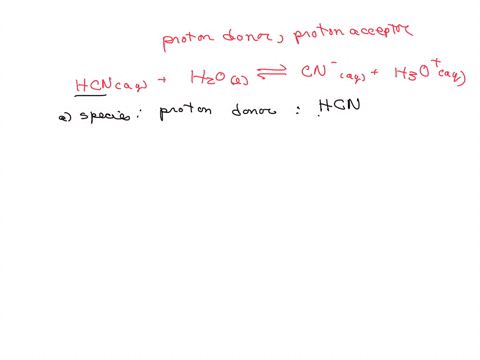 proton donor, proton acceptor
HCN(aq) + H2O(l) ⇌ CN⁻(aq) + H3O⁺(aq)
a) species: proton donor : HCN